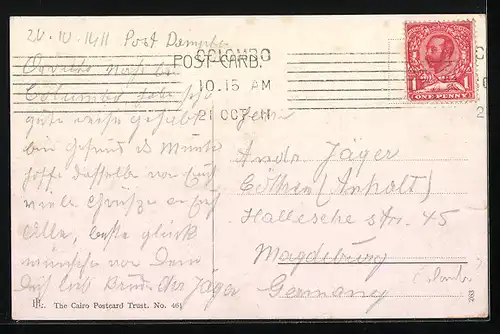 20.10.1911 Post Dampfer
POST CARD.
COLOMBO
10.15 AM
21 OCT 11
ONE PENNY
1
1
Colombo habe sehr
gute reise gehabt
bin gesund &
hoffe dasselbe von Euch
viele Grüsse an Euch
Alle, beste glück
wünsche von Dein
Dich lieb Bruder Jäger
Herrn
Andr. Jäger
Cöthen (Anhalt)
Hallesche str. 45
Magdeburg
Germany
The Cairo Postcard Trust. No. 461
203